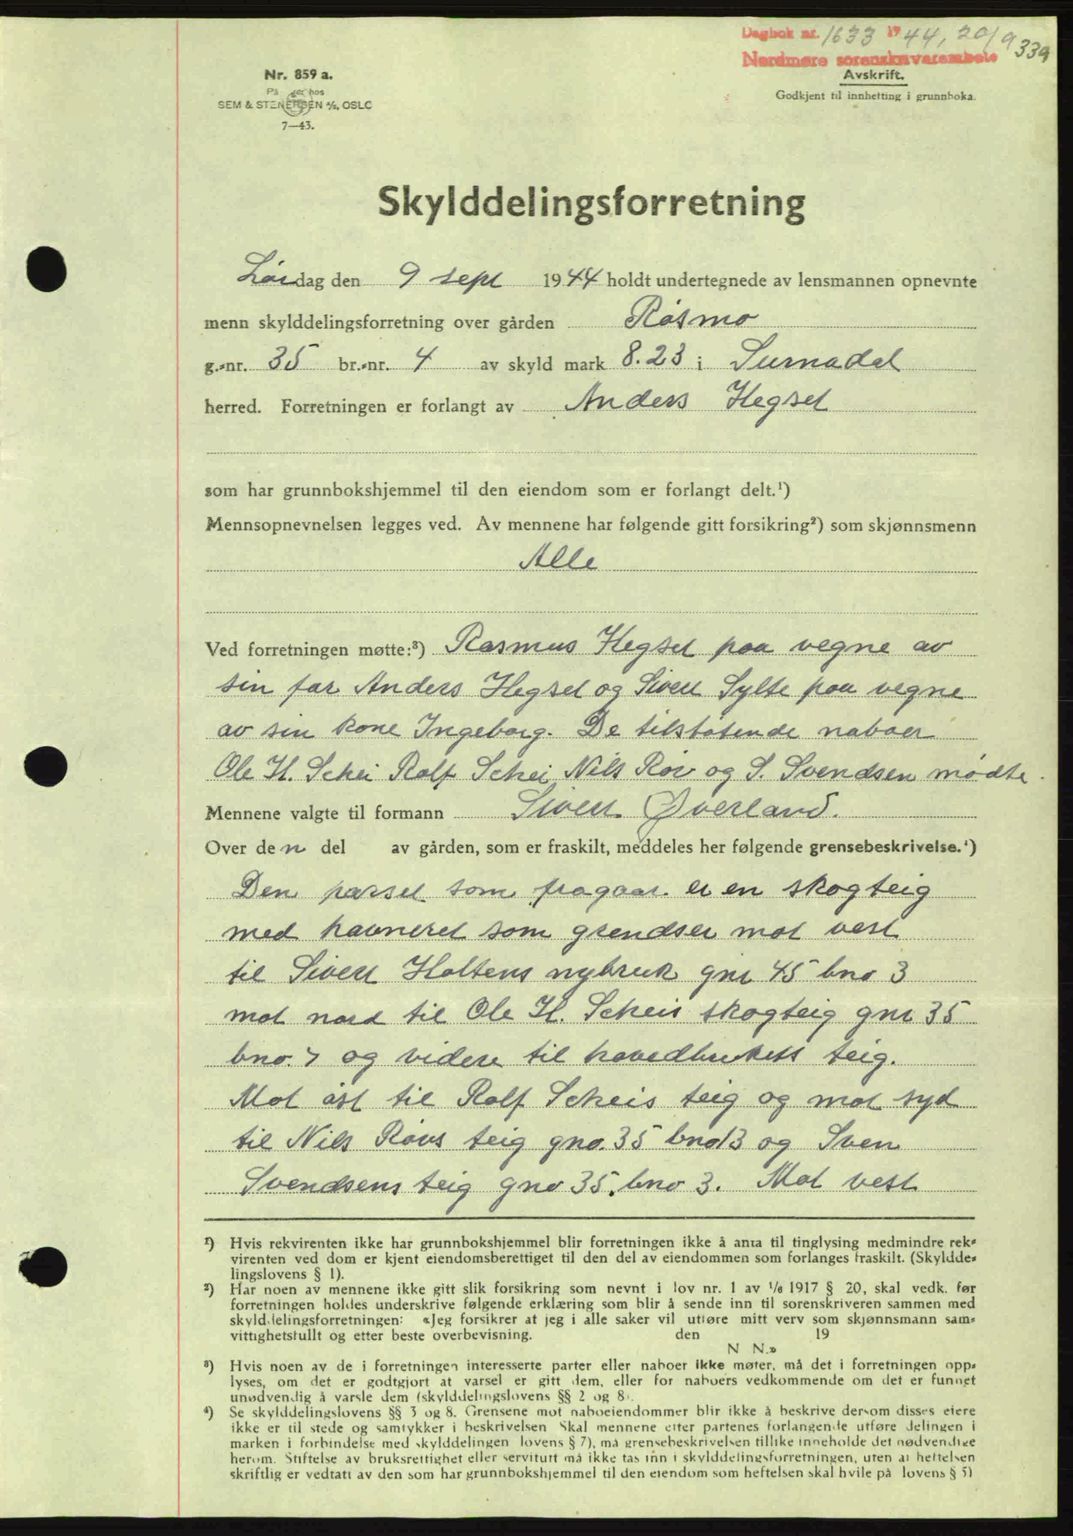 Dagbok nr. 1633 1944, 20/9
339
Nordmøre sorenskriverembete
Nr. 859 a.
Avskrift.
På lager hos
Godkjent til innhefting i grunnboka.
SEM & STENERSEN A/S, OSLO
7—43.
Skylddelingsforretning
Lørdag den 9 sept 1944 holdt undertegnede av lensmannen opnevnte
menn skylddelingsforretning over gården Røsmo
g.-nr. 35 br.-nr. 4 av skyld mark 8.23 i Surnadal
herred. Forretningen er forlangt av Anders Hegset
som har grunnbokshjemmel til den eiendom som er forlangt delt.¹)
Mennsopnevnelsen legges ved. Av mennene har følgende gitt forsikring²) som skjønnsmenn
Alle
Ved forretningen møtte:³) Rasmus Hegset paa vegne av
sin far Anders Hegset og Sivert Sylte paa vegne
av sin kone Ingeborg. De tilstøtende naboer
Ole H. Schei Rolf Schei Nils Røv og S. Svendsen mødte.
Mennene valgte til formann Sivert Øverland.
Over den del av gården, som er fraskilt, meddeles her følgende grensebeskrivelse.⁴)
Den parsel som fragaar er en skogteig
med havneret som grendser mot vest
til Sivert Holtens nybruk gnr 45 bno 3
mot nord til Ole H. Scheis skogteig gnr 35
bno. 7 og videre til hovedbrukets teig.
Mot øst til Rolf Scheis teig og mot syd
til Nils Røvs teig gno. 35 bno 13 og Sven
Svendsens teig gno 35. bno 3. Mot vest
¹) Hvis rekvirenten ikke har grunnbokshjemmel blir forretningen ikke å anta til tinglysing medmindre rek-
virenten ved dom er kjent eiendomsberettiget til den del av eiendommen som forlanges fraskilt. (Skyldde-
lingslovens § 1).
²) Har noen av mennene ikke gitt slik forsikring som nevnt i lov nr. 1 av 1/6 1917 § 20, skal vedk. før
forretningen holdes underskrive følgende erklæring som blir å sende inn til sorenskriveren sammen med
skylddelingsforretningen: «Jeg forsikrer at jeg i alle saker vil utføre mitt verv som skjønnsmann sam-
vittighetsfullt og etter beste overbevisning. den 19
N N.»
³) Hvis noen av de i forretningen interesserte parter eller naboer ikke møter, må det i forretningen opp-
lyses, om det er godtgjort at varsel er gitt dem, eller for naboers vedkommende om det er funnet
unødvendig å varsle dem (skylddelingslovens §§ 2 og 8).
⁴) Se skylddelingslovens §§ 3 og 8. Grensene mot naboeiendommer blir ikke å beskrive dersom disses eiere
ikke er til stede og samtykker i beskrivelsen Skal mennene etter partenes forlangende utføre delingen i
marken i forbindelse med skylddelingen lovens § 7), må grensebeskrivelsen tillike inneholde det nødvendige
herom. Stiftelse av bruksrettighet eller servitutt må ikke tas inn i skylddelingsforretningen, uten at heftelsen
skriftlig er vedtatt av den som har grunnbokshjemmel til den eiendom som heftelsen skal hvile på lovens § 5)